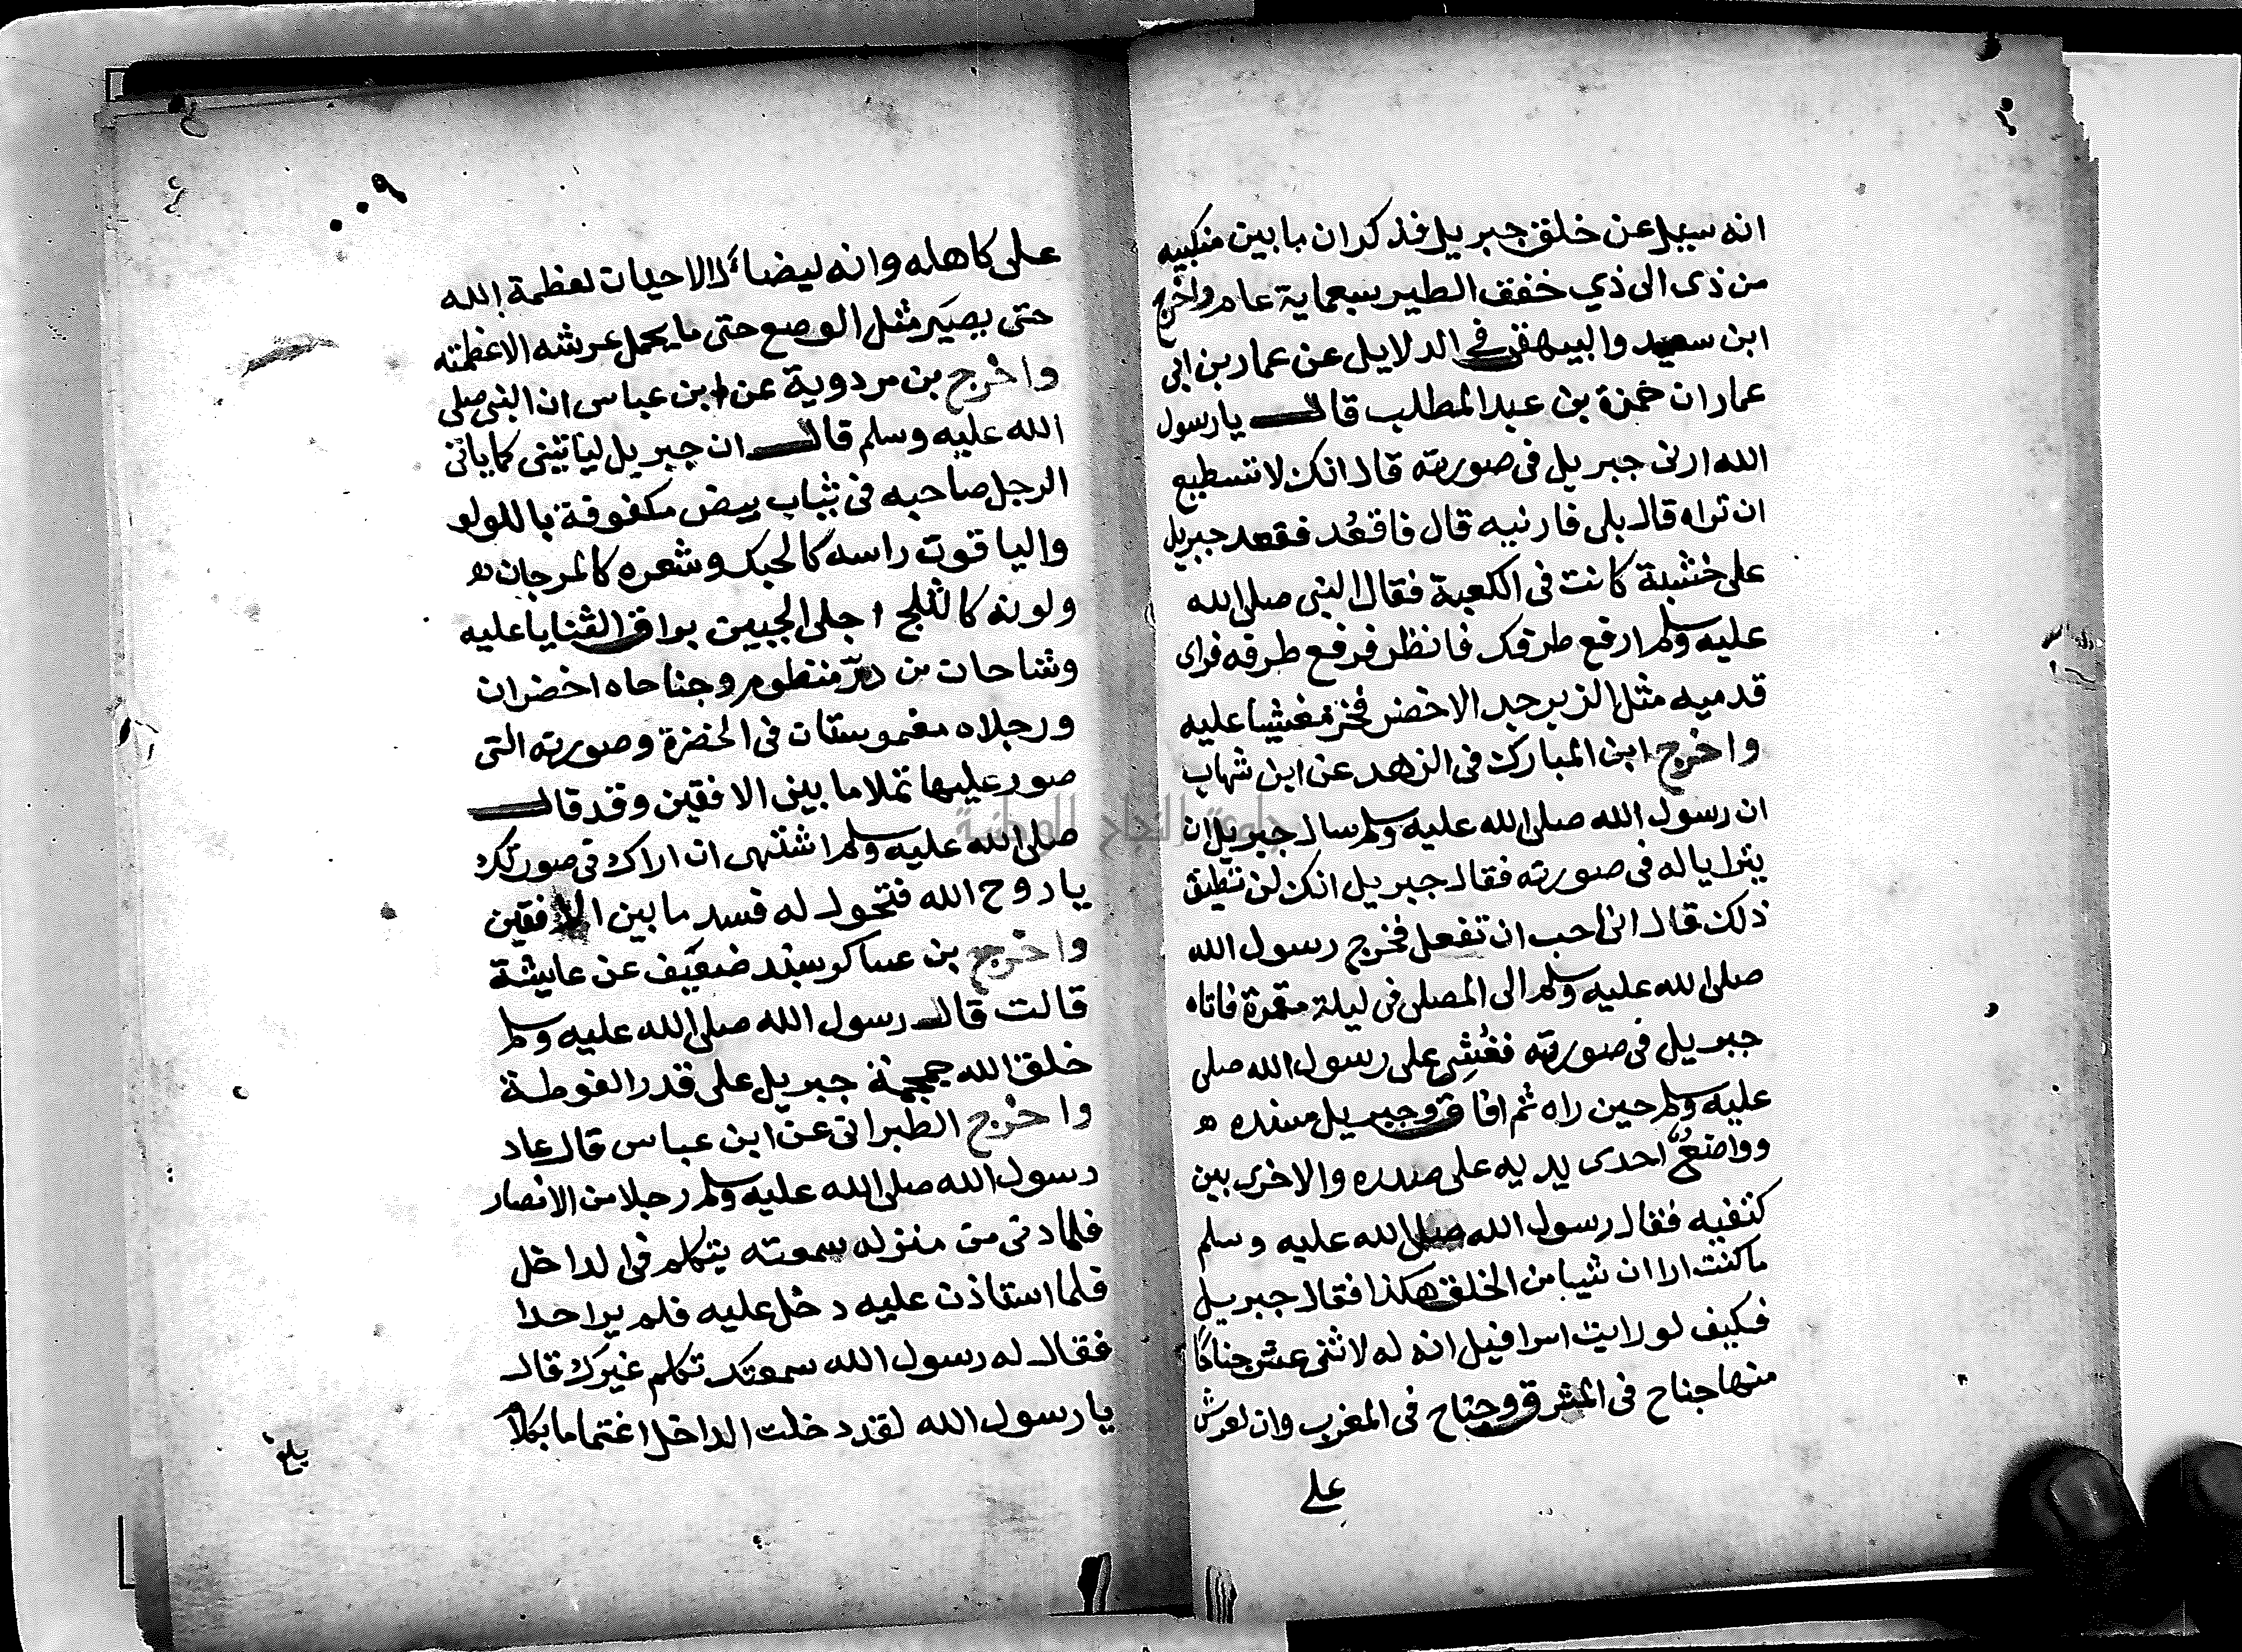 انه سيل عن خلق جبريل فذكر ان ما بين منكبيه
من ذى الى ذي خفق الطير سبعماية عام واخرج
ابن سعيد والبيهقى في الدلايل عن عمار بن ابى
عمار ان حمزة بن عبد المطلب قال يا رسول
الله ارنى جبريل فى صورته قال انك لا تستطيع
ان تراه قال بلى فارنيه قال فاقعُد فقعد جبريل
على خشبة كانت فى الكعبة فقال النبى صلى الله
عليه وسلم ارفع طرفك فانظر فرفع طرفه فراى
قدميه مثل الزبرجد الاخضر فخر مغشيا عليه
واخرج ابن المبارك فى الزهد عن ابن شهاب
ان رسول الله صلى الله عليه وسلم سال جبريل ان
يترايا له فى صورته فقال جبريل انك لن تطيق
ذلك قال انى احب ان تفعل فخرج رسول الله
صلى الله عليه وسلم الى المصلى فى ليلة مقمرة فاتاه
جبريل فى صورته فغُشِى على رسول الله صلى
عليه وسلم حين راه ثم افاق وجبريل مسنده ه
وواضعٌ احدى يديه على صدره والاخرى بين
كتفيه فقال رسول الله صلى الله عليه وسلم
ما كنت ارا ان شيا من الخلق هكذا فقال جبريل
فكيف لو رايت اسرافيل انه له لاثنى عشر جناحًا
منها جناح فى المشرق وجناح فى المغرب وان لعرش
على
٠٠٩
على كاهله وانه ليضائل الاحيان لعظمة الله
حتى يصير مثل الوصع حتى ما يحمل عرشه الا عظمته
واخرج بن مردوية عن ابن عباس ان النبى صلى
الله عليه وسلم قال ان جبريل لياتينى كما ياتى
الرجل صاحبه فى ثياب بيض مكفوفة باللولو
والياقوت راسه كالحبك وشعره كالمرجان ه
ولونه كالثلج اجلى الجبين براق الثنايا عليه
وشاحان من درّ منظوم وجناحاه اخضران
ورجلاه مغموستان فى الخضرة وصورته التى
صور عليها تملا ما بينى الافقين وقد قال
صلى الله عليه وسلم اشتهى ان اراك فى صورتك
يا روح الله فتحول له فسد ما بين الافقين
واخرج بن عساكر بسند ضعيف عن عايشة
قالت قال رسول الله صلى الله عليه وسلم
خلق الله جمجمة جبريل على قدر الغوطة
واخرج الطبرانى عن ابن عباس قال عاد
رسول الله صلى الله عليه وسلم رجلا من الانصار
فلما دنى من منزله سمعته يتكلم فى الداخل
فلما استاذن عليه دخل عليه فلم يرا احدا
فقال له رسول الله سمعتك تكلم غيرك قال
يا رسول الله لقد دخلت الداخل اغتماما بكلام
بلغ
جامعة النجاح الوطنية